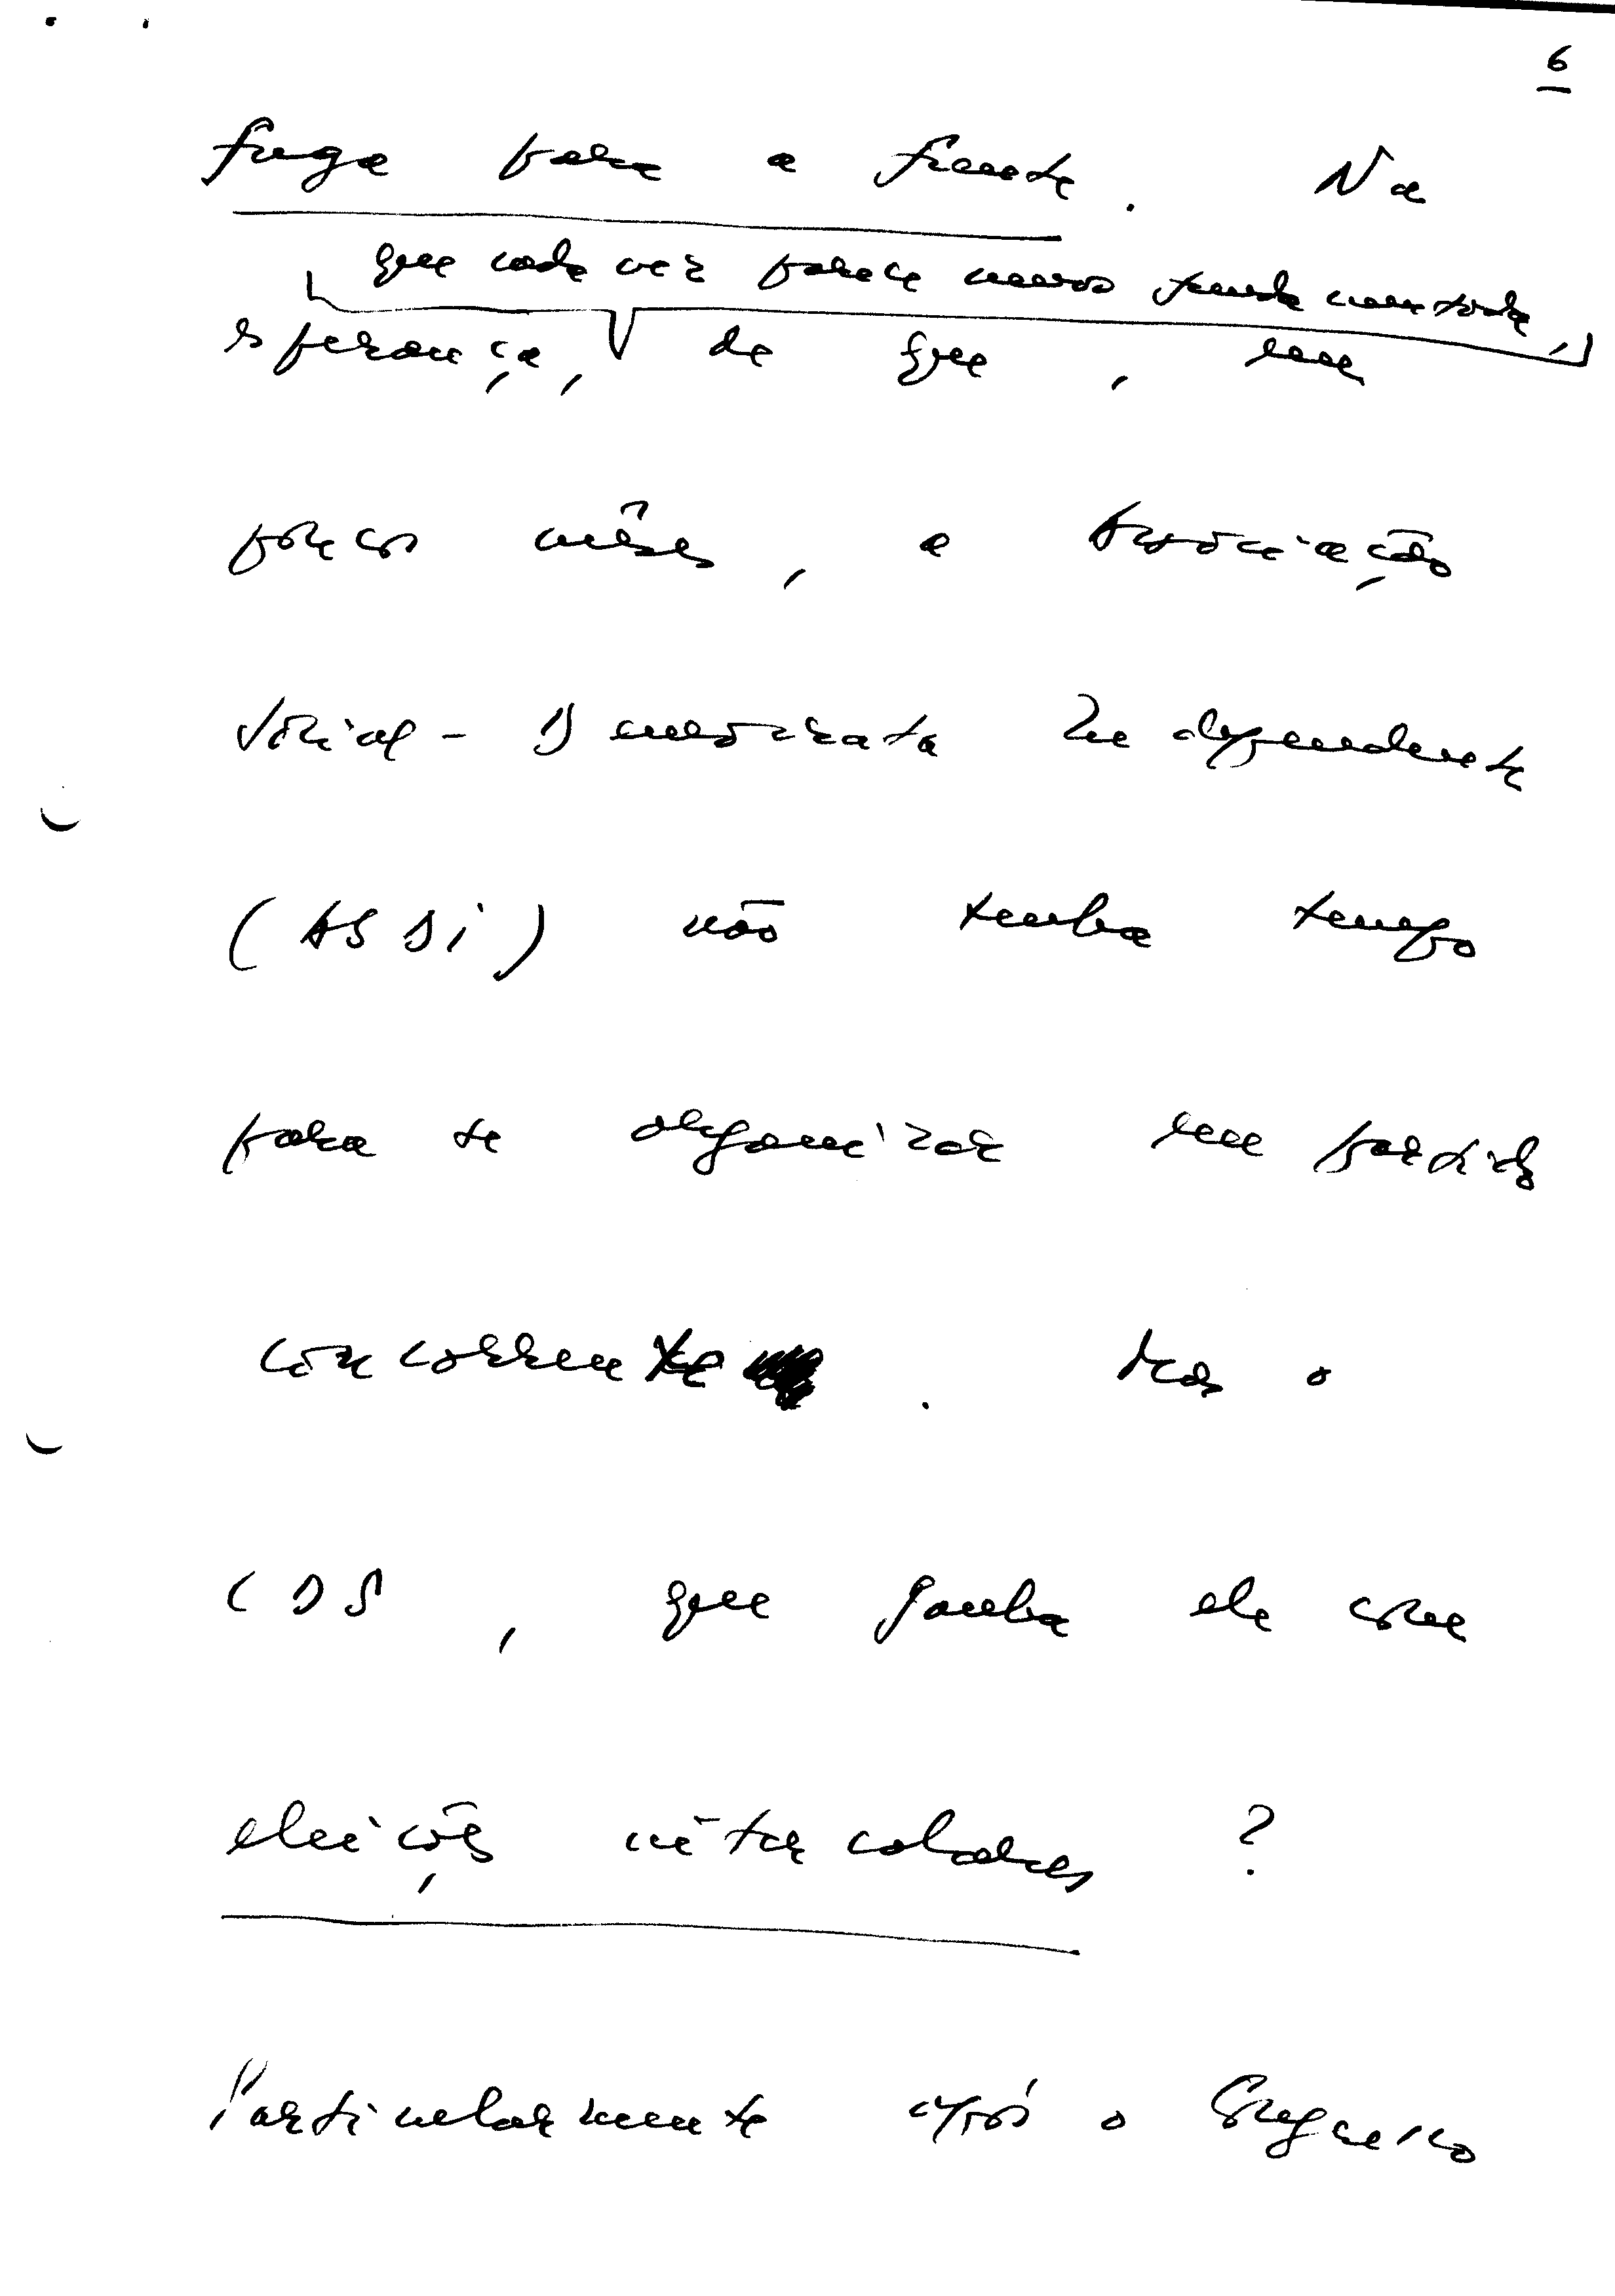 6
fuga para a frente. Na
que cada vez parece menos fundamentada,
esperança, de que, em
poucos mêses, a Associação
Social-Democrata Independente
(ASDI) não tenha tempo
para se organizar em partido
concorrente. Mas o
CDS, que ganha ele com
eleições intercalares?
Particularmente após o Congresso